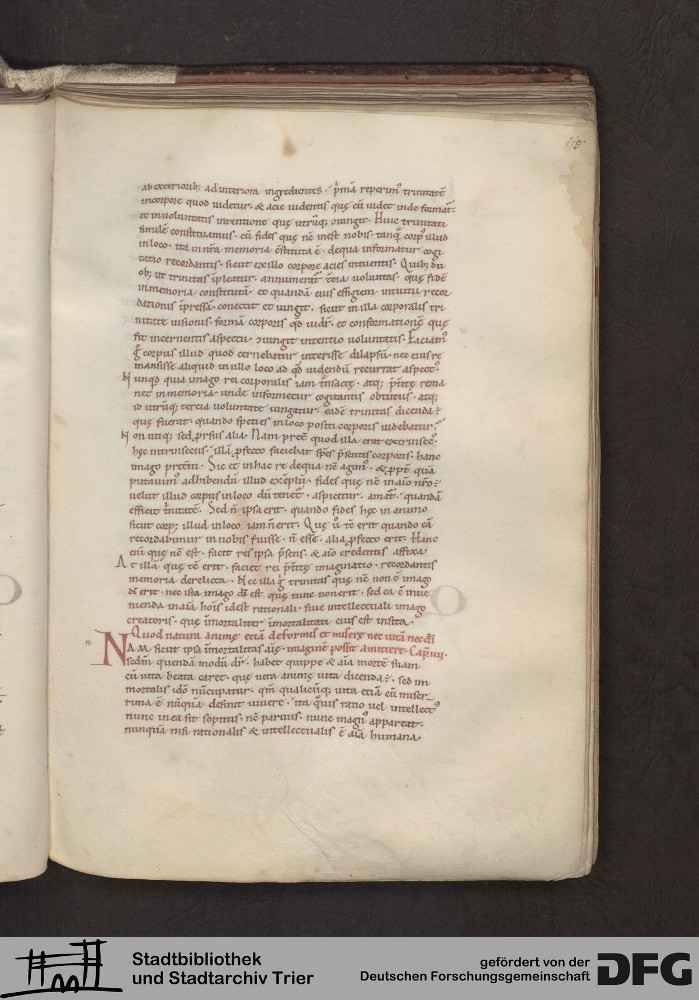 115
ab exteriorib; ad interiora ingredientes. p̄mā reperim᷒ trinitatē
in corpore quod uidetur. & acie uidentis quę cū uidet inde format᷒.
et in uoluntatis intentione quę utrūq; ɔiungit. Huic trinitati
similē constituamus. cū fides quę nē inest nobis. tanq̄ corp᷒ illud
in loco. ita in nr̄a memoria cstituta ē. de qua informatur cogi
tatio recordantis. sicut ex illo corpore acies intuentis. Quib; du
ob; ut trinitas īpleatur. annumerat᷒ tcia uoluntas. quę fidē
in memoria constitutā. et quandā eius effigiem intuitu recor
dationis īpressā. conectit et iungit. sicut in illa corporalis tri
nitate uisionis. formā corporis qđ uidet᷒. et conformationē quę
fit in cernentis aspectu. ɔiungit intentio uoluntatis. Faciam᷒
g͛ corpus illud quod cernebatur interisse dilapsū. nec eius re
mansisse aliquid in ullo loco ad qđ uidendū recurrat aspect᷒.
Nunqd quia imago rei corporalis iam t̄nsactę. atq; p̄titę rema
net in memoria. unde informetur cogitantis obtutus. atq;
id utrūq; tercia uoluntate iungatur. eadē trinitas dicenda ē
quę fuerat. quando species in loco positi corporis uidebatur?
Non utiq; sed prsus alia. Nam pret̄ quod illa erat extrinsec᷒.
hęc intrinsecus. illā pfecto faciebat spēs p̄sentis corporis. hanc
imago pret̄iti. Sic et in hac re de qua nē agim᷒. & ppt̄ quā
putauim᷒ adhibendū illud exēplū. fides quę nē in aīo nr̄o ē.
uelut illud corpus in loco dū tenet᷒. aspicitur. amat᷒. quandā
efficit t̄nitatē. Sed n̄ ipsa erit. quando fides hęc in animo
sicut corp; illud in loco iam n̄ erit. Quę ū tē erit quando eā
recordabimur in nobis fuisse. n̄ esse. alia pfecto erit. Hanc
enī quę nē est. facit res ipsa p̄sens. & aīo credentis affixa
At illā quę tē erit. faciet rei p̄titę imaginatio. recordantis
memoria derelicta. Nec illa g͛ trinitas quę nē non ē imago
dī erit. nec ista imago dī est quę tunc non erit. sed ea ē inue
nienda in aīa hoīs id est rationali. siue intellectuali imago
creatoris. quę īmortaliter īmortalitati eius est insita.
Quod natura animę etiā deformis et miserę nec uitā nec dī
n NAM sicut ipsa īmortalitas aīę. imaginē possit amittere. Cap. iiij.
scdm quendā modū dr̄. habet quippe & aīa mortē suam
cū uita beata caret. quę uera animę uita dicenda ē. sed im
mortalis idō nūcupatur. qm̄ qualicūq; uita etiā cū miser
rima ē nūquā desinit uiuere. ita quis ratio uel intellect᷒
nunc in ea sit sopitus. nē paruus. nunc magn᷒ appareat.
nunquā nisi rationalis & intellectualis ē aīa humana.
Stadtbibliothek
und Stadtarchiv Trier
gefördert von der
Deutschen Forschungsgemeinschaft
DFG